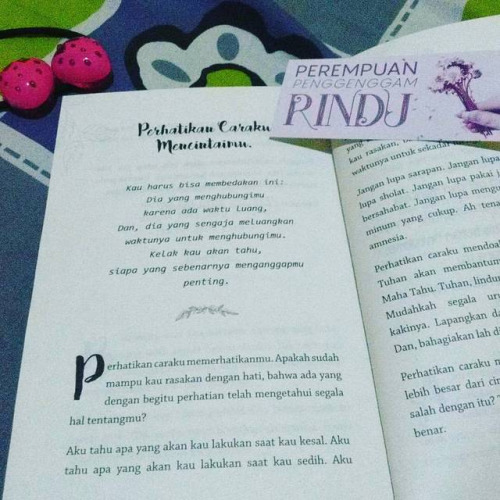 Perhatikan Caraku
Mencintaimu.
Kau harus bisa membedakan ini:
Dia yang menghubungimu
karena ada waktu luang,
Dan, dia yang sengaja meluangkan
waktunya untuk menghubungimu.
Kelak kau akan tahu,
siapa yang sebenarnya menganggapmu
penting.
Perhatikan caraku memerhatikanmu. Apakah sudah
mampu kau rasakan dengan hati, bahwa ada yang
dengan begitu perhatian telah mengetahui segala
hal tentangmu?
Aku tahu apa yang akan kau lakukan saat kau kesal. Aku
tahu apa yang akan kau lakukan saat kau sedih. Aku
PEREMPUAN
PENGGENGGAM
RINDU
kau rasakan,
waktunya untuk sekadar
Jangan lupa sarapan. Jangan lupa
lupa sholat. Jangan lupa pakai
bersahabat. Jangan lupa
minum yang cukup. Ah
amnesia.
Perhatikan caraku
Tuhan akan
Maha Tahu. Tuhan,
Mudahkah segala
kakinya. Lapangkan
Dan, bahagiakan lah
Perhatikan caraku
lebih besar dari
salah dengan itu?
benar.